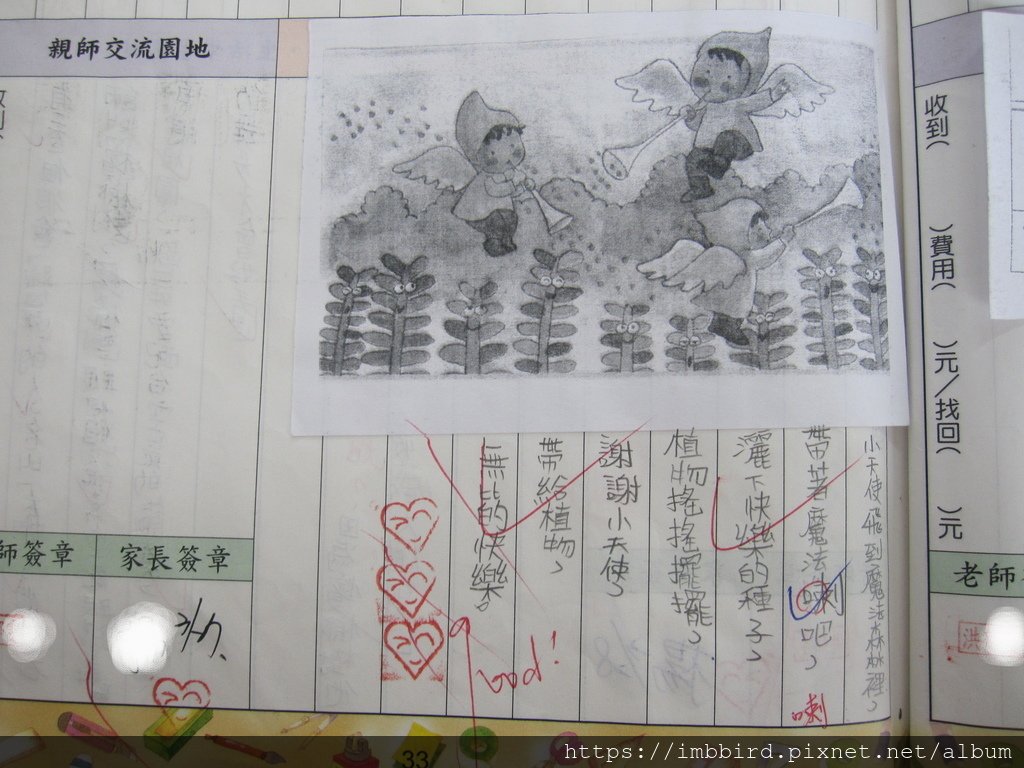 小天使飛到魔法森林裡,
帶著魔法喇吧,
喇
灑下快樂的種子,
植物搖搖擺擺,
謝謝小天使,
帶給植物,
無比的快樂。
Good!
親師交流園地
收到(
師簽章
家長簽章
33
收到(
)費用(
)元/找回(
)元
老師
洪
https://imbbird.pixnet.net/album